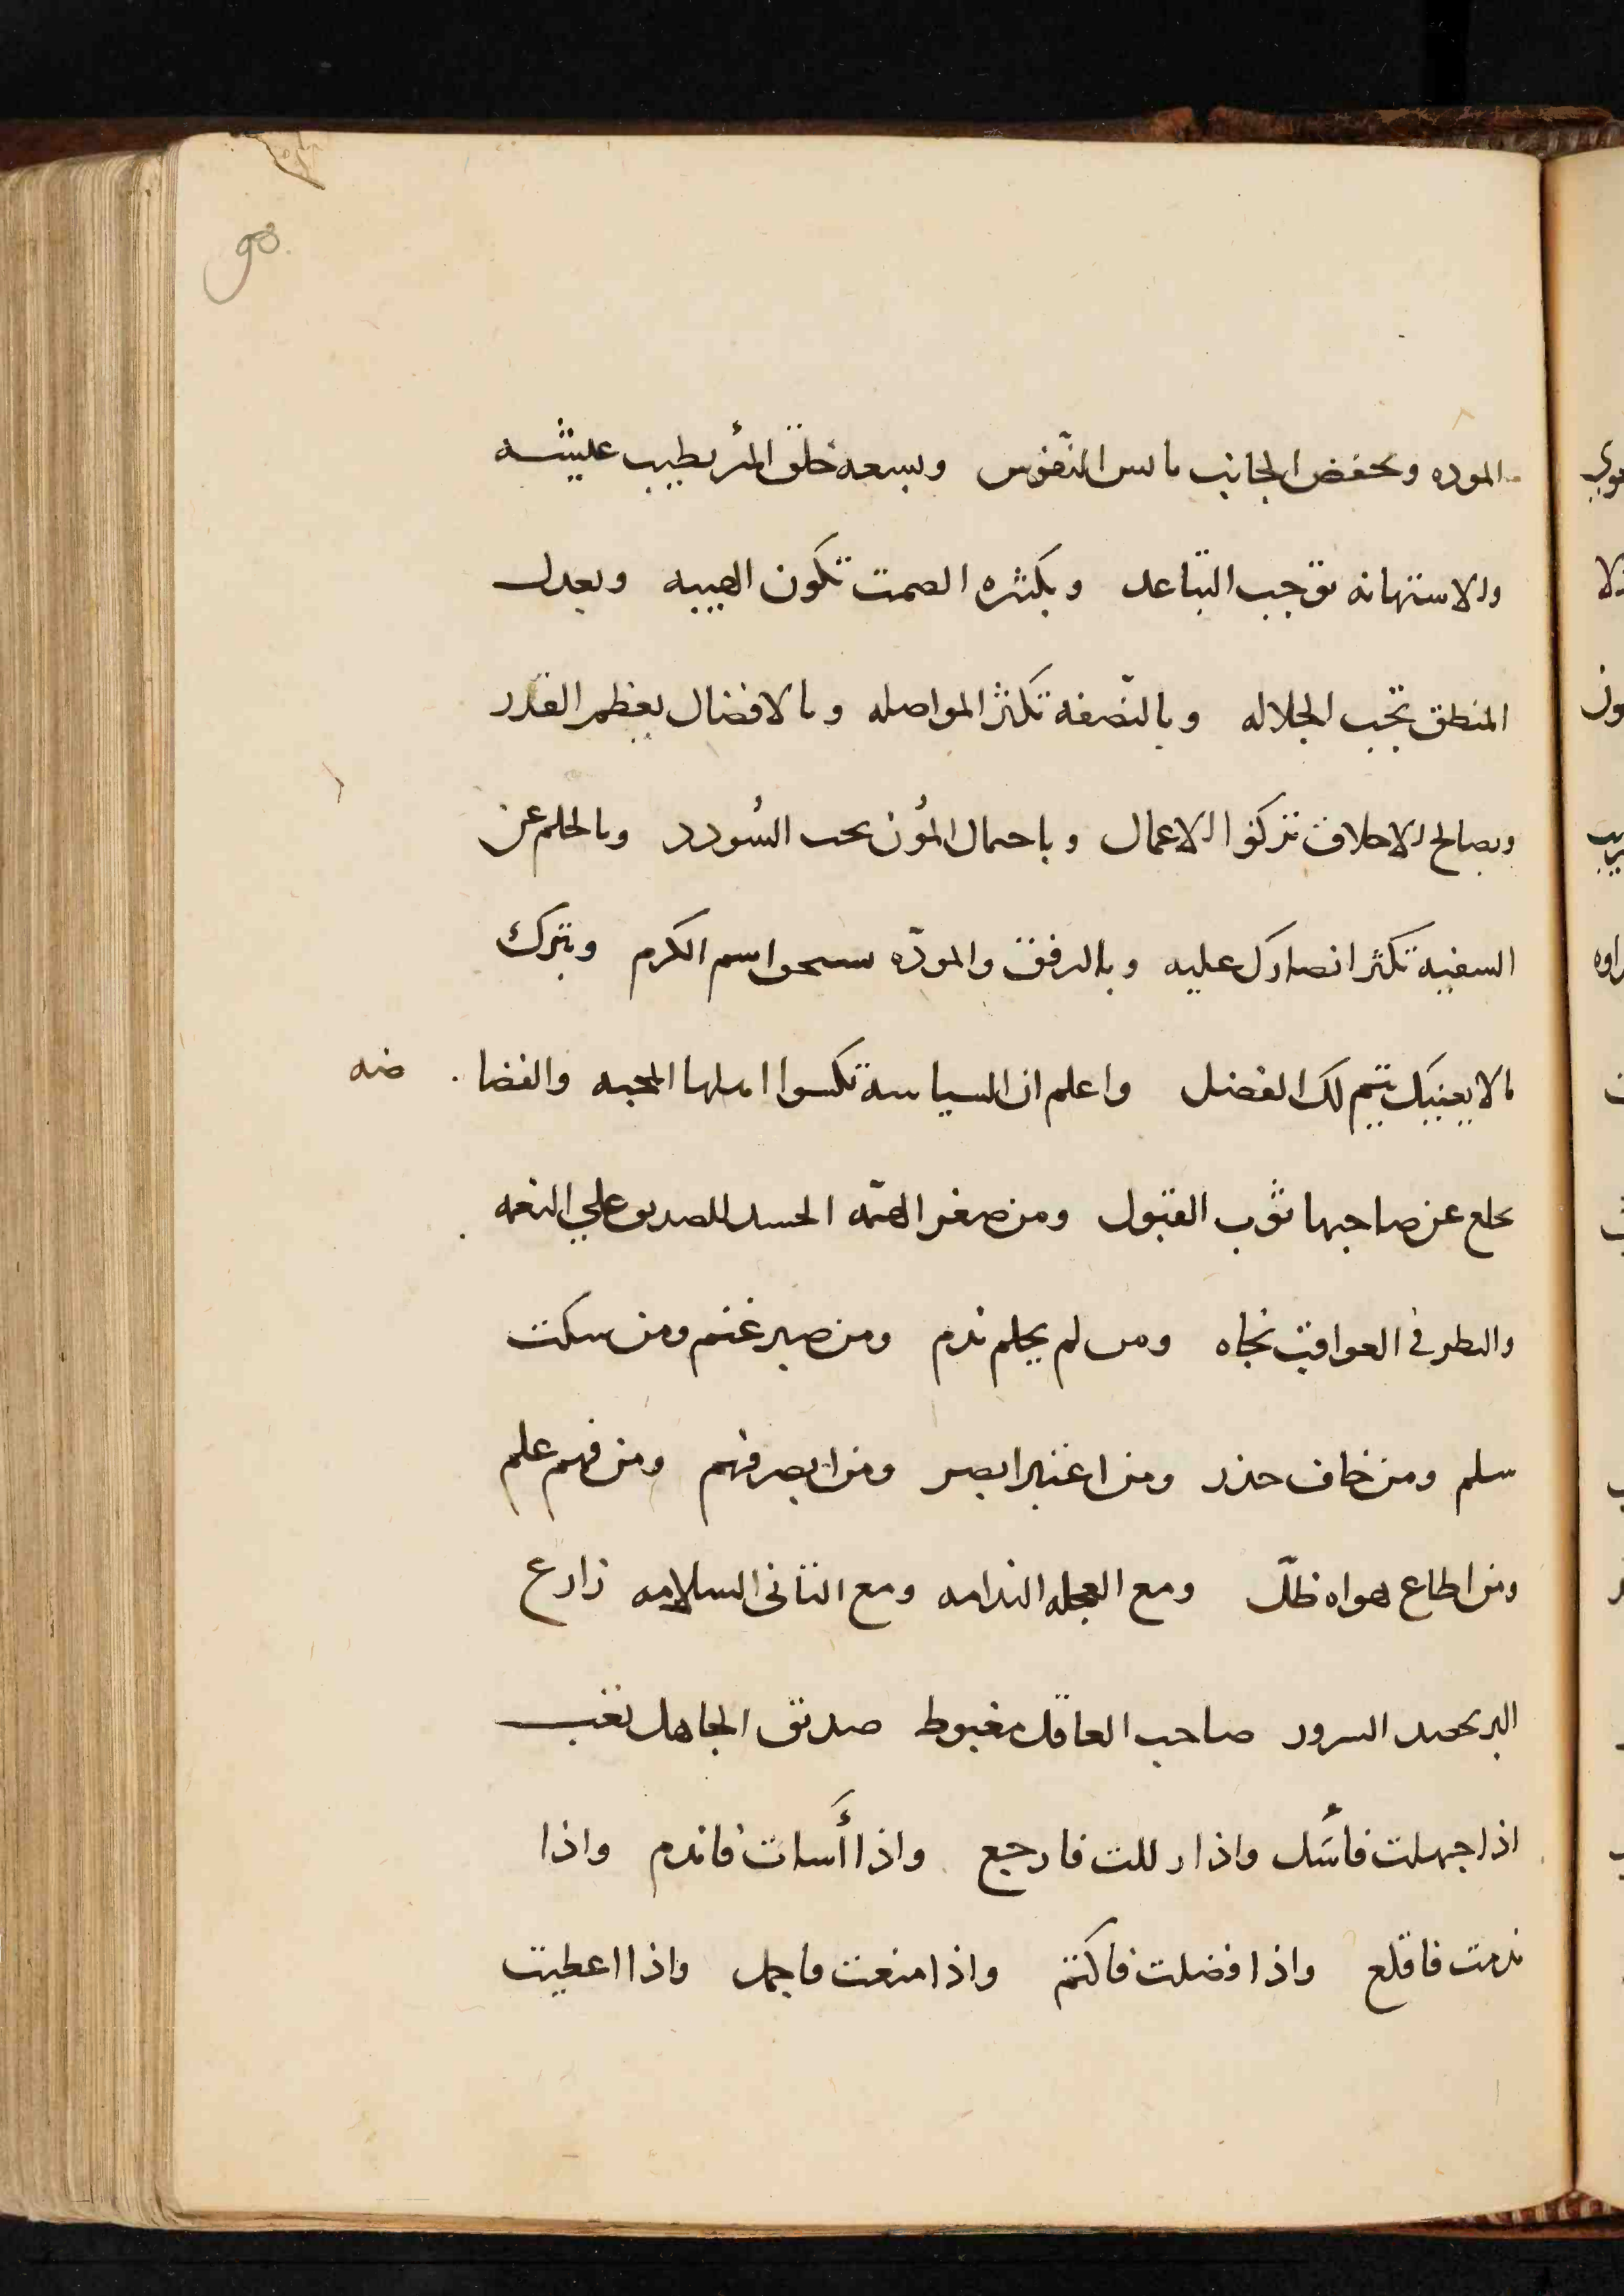 90
الموده وبخفض الجانب تانس النّفوس وبسعه خلق المرُ يطيب عيشه
والاستهانه توجب التباعد وبكثره الصمت تكون الهيبه وبعدل
المنطق تجب الجلاله وبالنّصفه تكثر المواصله وبالافضال يعظم القدر
وبصالح الاخلاق تزكوا الاعمال وباحتمال المؤن يجب السُودد وبالحلم عن
السفيه تكثر انصارك عليه وبالرفق والمودّه اسم الكرم وبترك
مالا يعنيك يتم لك الفضل واعلم ان السياسه تكسوا اهلها المحبه والفضا . ضه
تخلع عن صاحبها ثوب القبول ومن صغر الهمّه الحسد للصديق علي النعمه
والنظر في العواقب نجاه ومن لم يحلم ندم ومن صبر غنم ومن سكت
سلم ومن خاف حذر ومن اعتبر ابصر ومن ابصر فهم ومن فهم علم
ومن اطاع هواه ظلّ ومع العجله الندامه ومع التانى السلامه زارع
البر يحصد السرور صاحب العاقل مغبوط صديق الجاهل تعب
اذا جهلت فاسَل واذا زللت فارجع واذا أسات فاندم واذا
ندمت فاقلع واذا افضلت فاكتم واذا منعت فاجمل واذا اعطيت